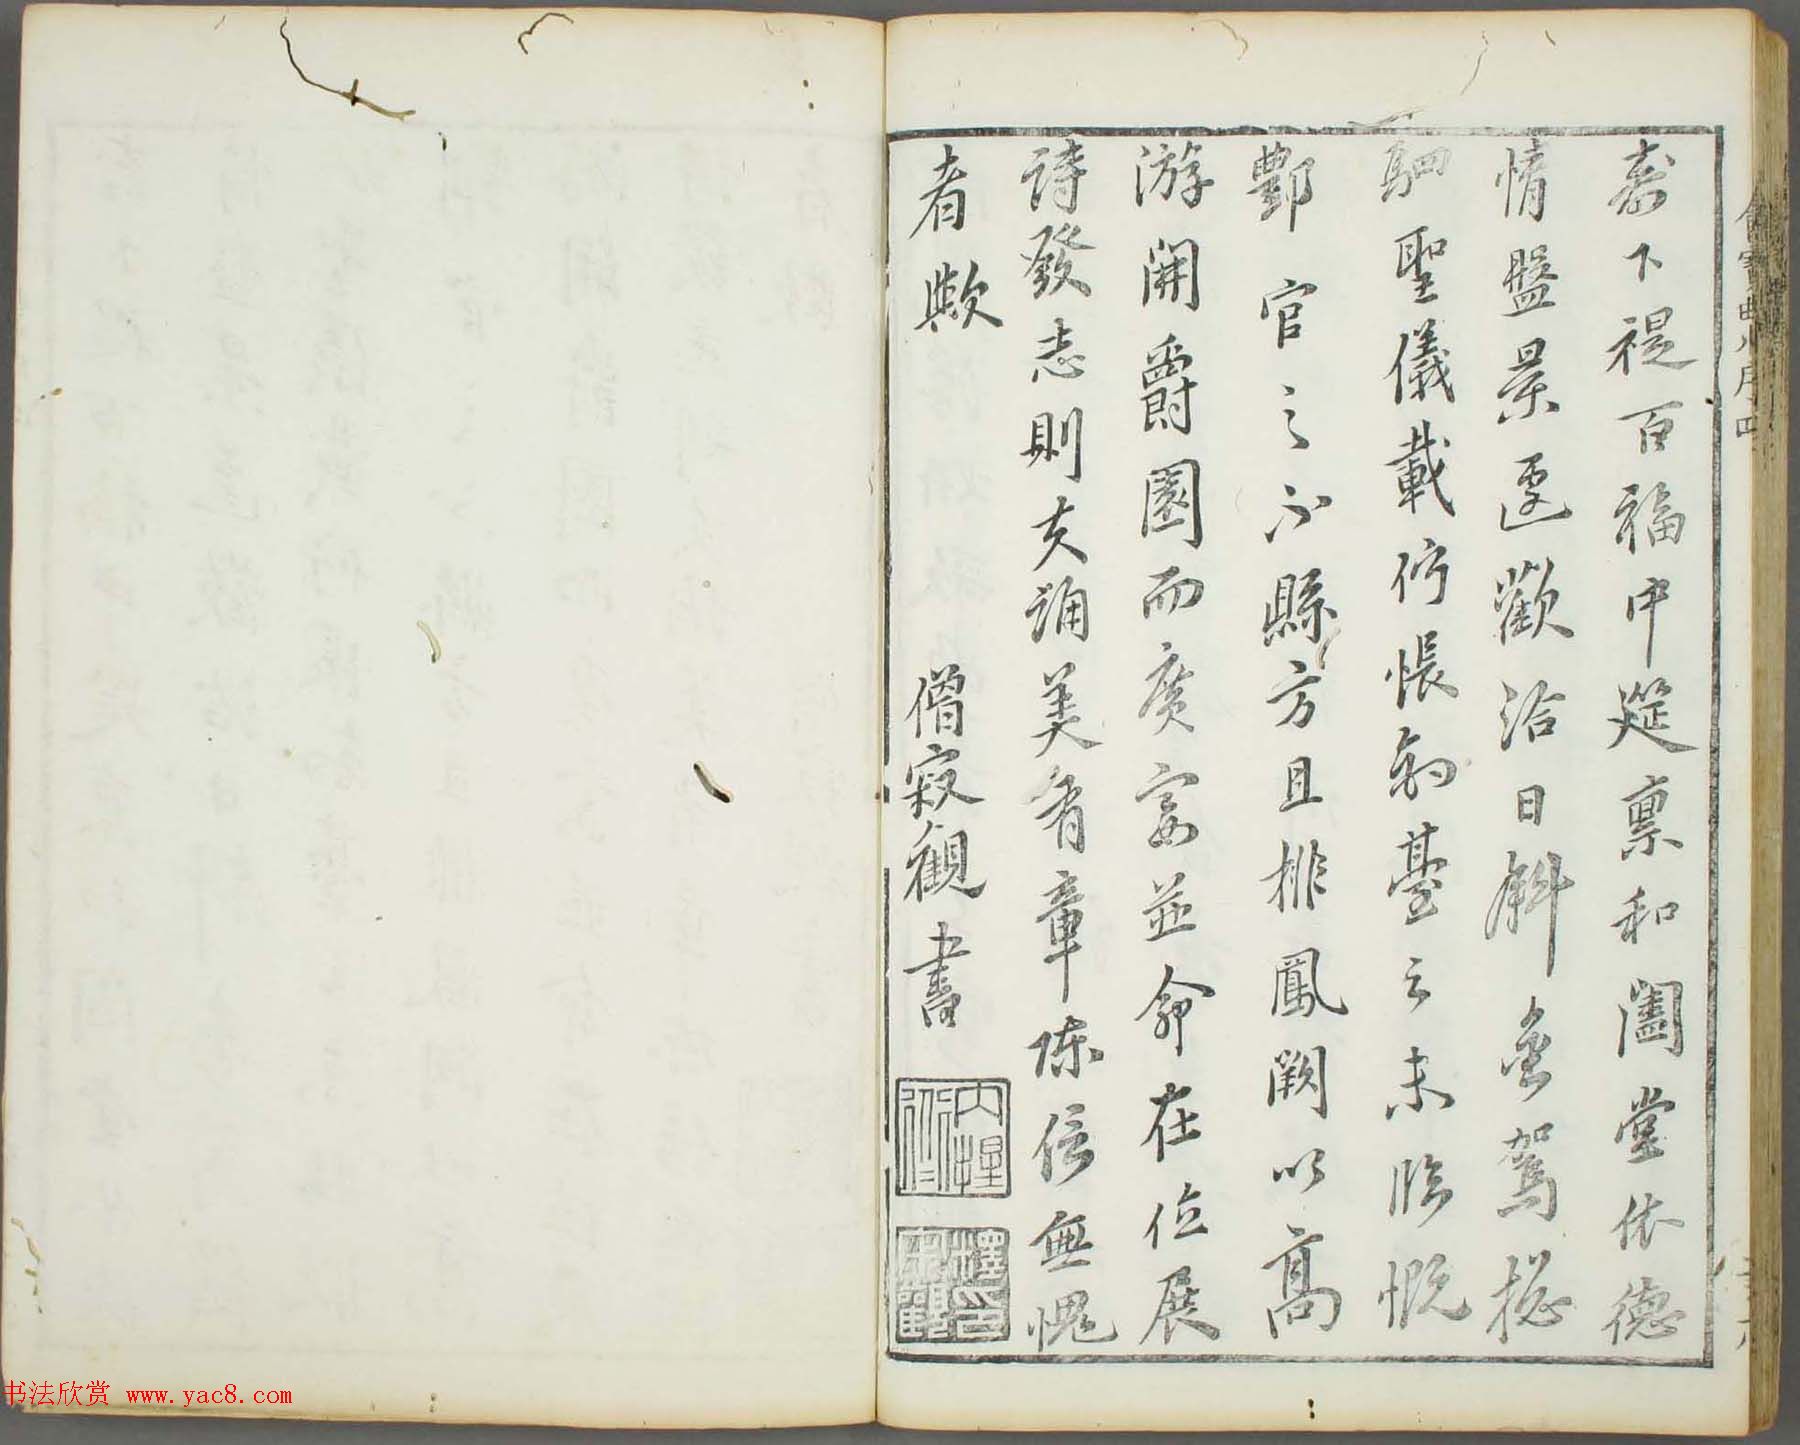 壽下禔百福帀筵稟和闔堂依德
情盤景遽歡洽日斜金駕總
駟聖儀載佇悵鈞臺之未臨慨
酆宮之不縣方且排鳳闕以高
游開爵園而廣宴並命在位展
詩發志則夫誦美有章陳信無愧
者歟
僧寂觀書
书法欣赏 www.yac8.com